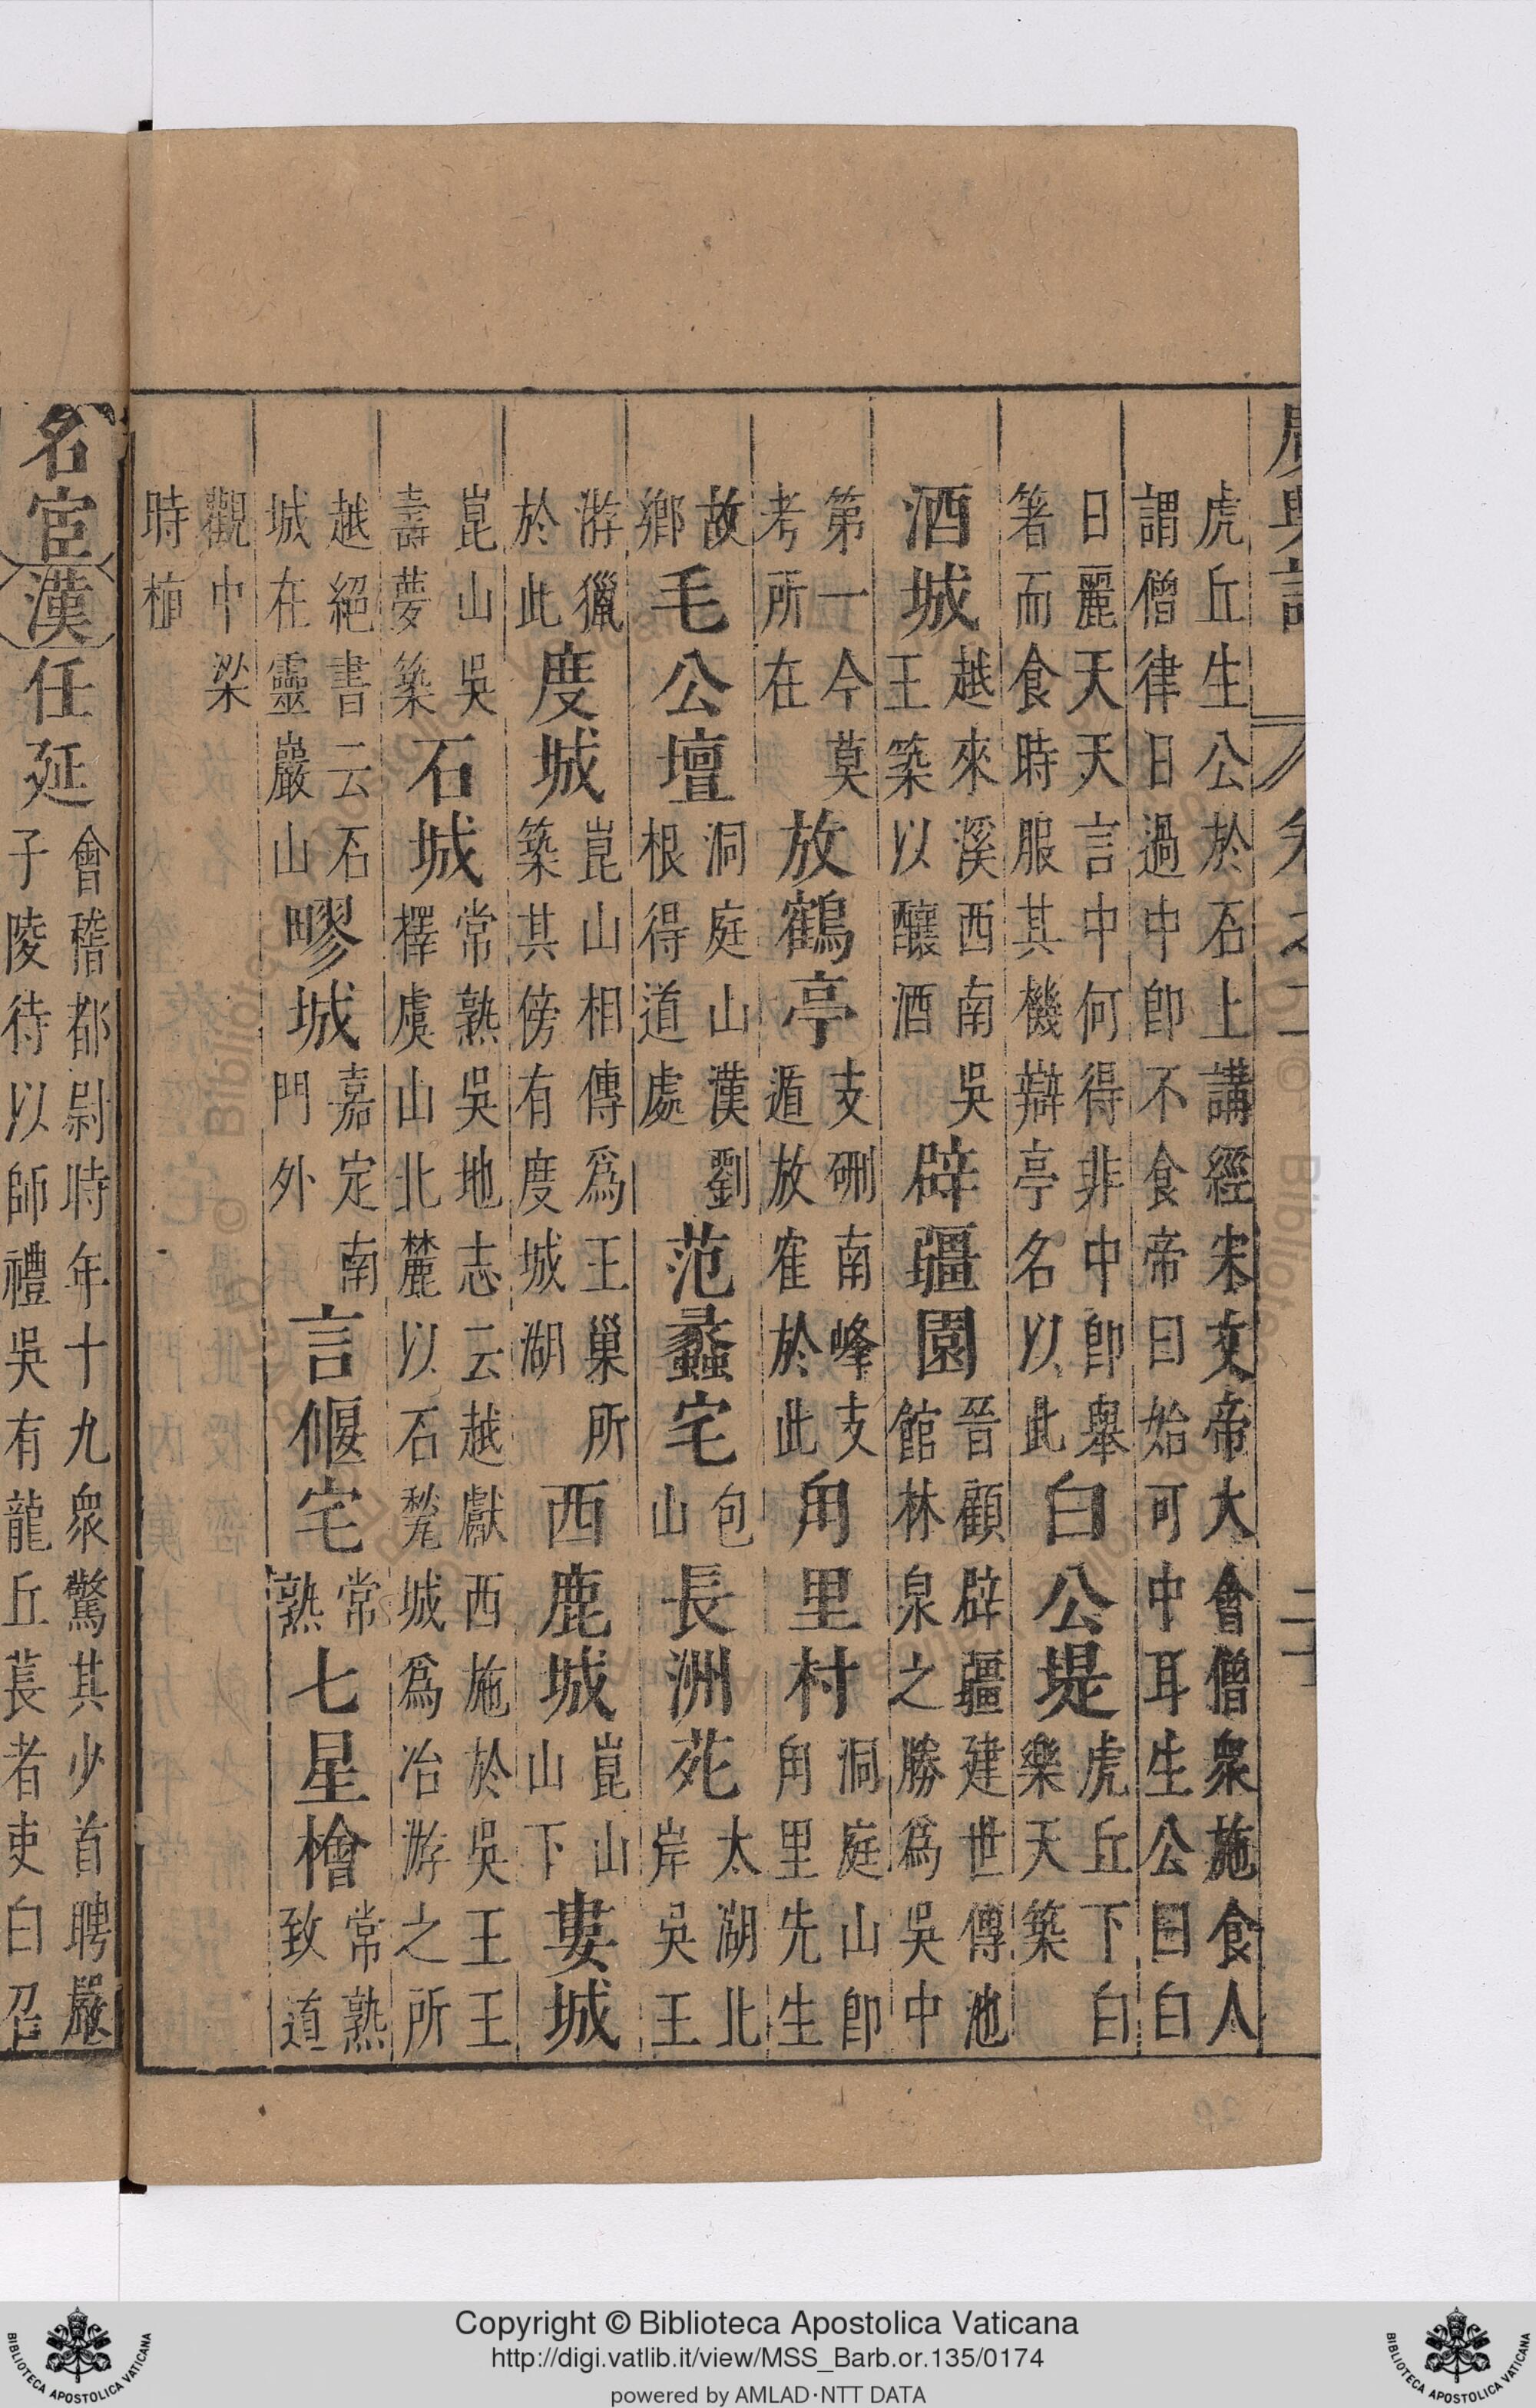 廣輿記 卷之二 二十
虎丘生公於石上講經宋文帝大會僧眾施食人
謂僧律日過中即不食帝曰始可中耳生公曰白
日麗天天言中何得非中即舉
箸而食時服其機辯亭名以此
白公堤
虎丘下白
樂天築
酒城
越來溪西南吳
王築以釀酒
辟疆園
晉顧辟疆建世傳池
館林泉之勝爲吳中
第一今莫
考所在
放鶴亭
支硎南峰支
遁放隺於此
甪里村
洞庭山即
甪里先生
故
鄉
毛公壇
洞庭山漢劉
根得道處
范蠡宅
包
山
長洲苑
太湖北
岸吳王
游獵
於此
度城
崑山相傳爲王巢所
築其傍有度城湖
西鹿城
崑山
山下
婁城
崑山吳
壽夢築
石城
常熟吳地志云越獻西施於吳王王
擇虞山北麓以石甃城爲冶游之所
越絕書云石
城在靈巖山
疁城
嘉定南
門外
言偃宅
常
熟
七星檜
常熟
致道
觀中梁
時植
名宦
漢
任延
會稽都尉時年十九眾驚其少首聘嚴
子陵待以師禮吳有龍丘萇者吏白召
Copyright © Biblioteca Apostolica Vaticana
http://digi.vatlib.it/view/MSS_Barb.or.135/0174
powered by AMLAD·NTT DATA